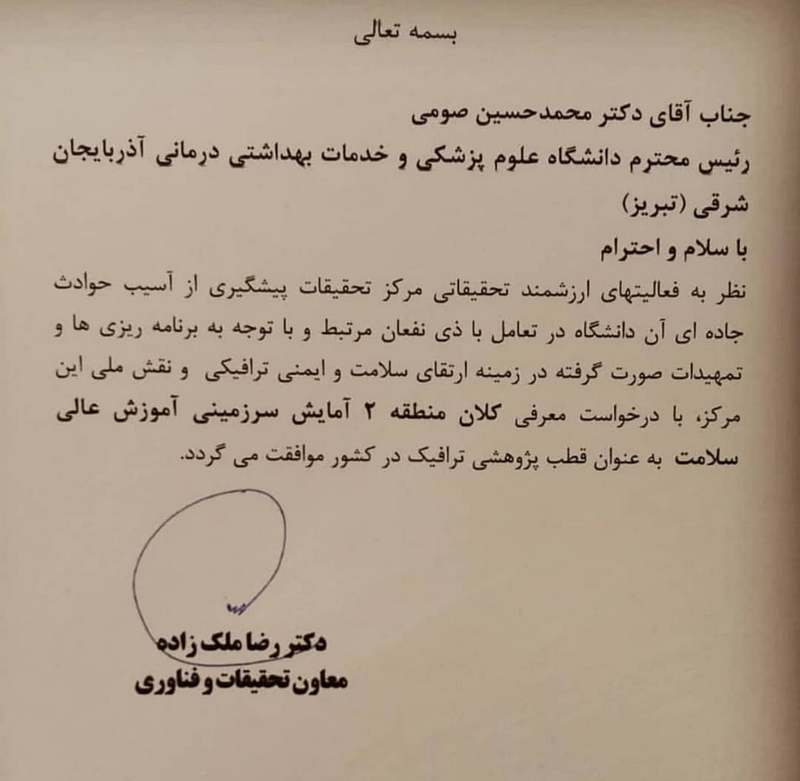 بسمه تعالی
جناب آقای دکتر محمدحسین صومی
رئیس محترم دانشگاه علوم پزشکی و خدمات بهداشتی درمانی آذربایجان
شرقی (تبریز)
با سلام و احترام
نظر به فعالیتهای ارزشمند تحقیقاتی مرکز تحقیقات پیشگیری از آسیب حوادث
جاده ای آن دانشگاه در تعامل با ذی نفعان مرتبط و با توجه به برنامه ریزی ها و
تمهیدات صورت گرفته در زمینه ارتقای سلامت و ایمنی ترافیکی و نقش ملی این
مرکز، با درخواست معرفی کلان منطقه ۲ آمایش سرزمینی آموزش عالی
سلامت به عنوان قطب پژوهشی ترافیک در کشور موافقت می گردد.
دکتر رضا ملک زاده
معاون تحقیقات و فناوری